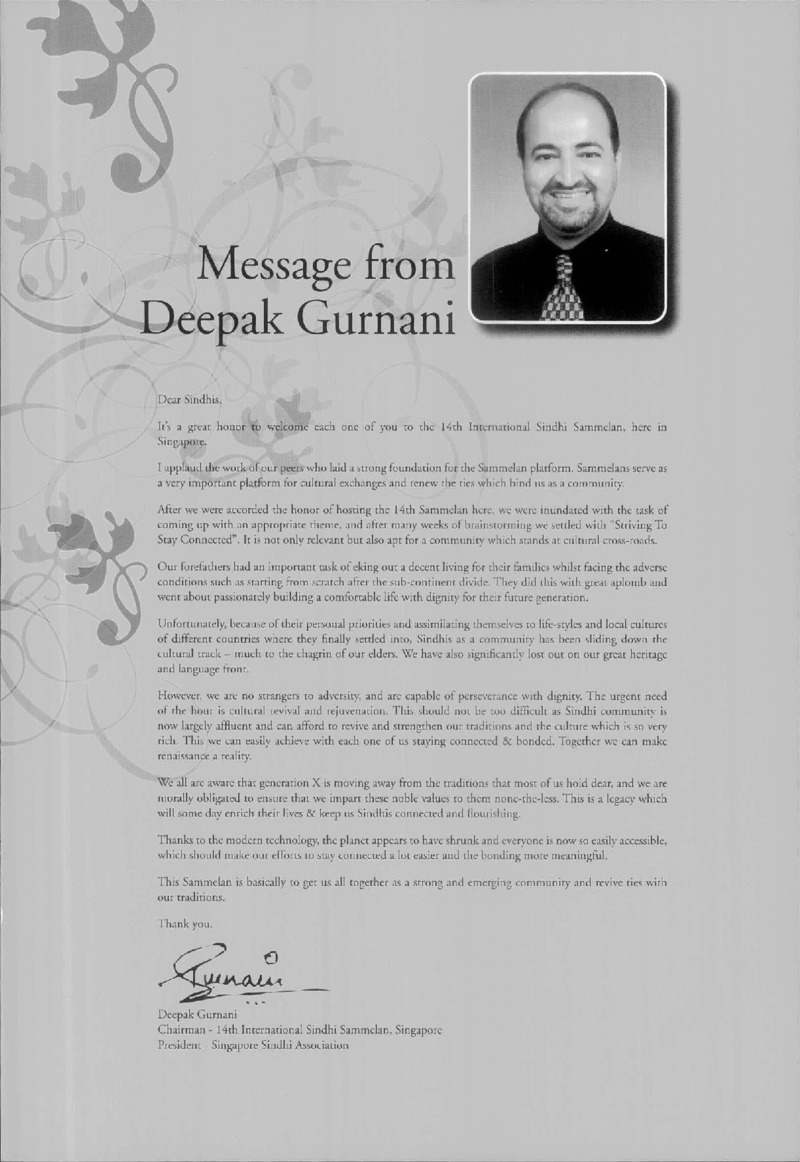 Message from
Deepak Gurnani
Dear Sindhis,
It's a great honor to welcome each one of you to the 14th International Sindhi Sammelan, here in
Singapore.
I applaud the work of our peers who laid a strong foundation for the Sammelan platform. Sammelans serve as
a very important platform for cultural exchanges and renew the ties which bind us as a community.
After we were accorded the honor of hosting the 14th Sammelan here, we were inundated with the task of
coming up with an appropriate theme, and after many weeks of brainstorming we settled with "Striving To
Stay Connected". It is not only relevant but also apt for a community which stands at cultural cross-roads.
Our forefathers had an important task of eking out a decent living for their families whilst facing the adverse
conditions such as starting from scratch after the sub-continent divide. They did this with great aplomb and
went about passionately building a comfortable life with dignity for their future generation.
Unfortunately, because of their personal priorities and assimilating themselves to life-styles and local cultures
of different countries where they finally settled into, Sindhis as a community has been sliding down the
cultural track – much to the chagrin of our elders. We have also significantly lost out on our great heritage
and language front.
However, we are no strangers to adversity, and are capable of perseverance with dignity. The urgent need
of the hour is cultural revival and rejuvenation. This should not be too difficult as Sindhi community is
now largely affluent and can afford to revive and strengthen our traditions and the culture which is so very
rich. This we can easily achieve with each one of us staying connected & bonded. Together we can make
renaissance a reality.
We all are aware that generation X is moving away from the traditions that most of us hold dear, and we are
morally obligated to ensure that we impart these noble values to them none-the-less. This is a legacy which
will some day enrich their lives & keep us Sindhis connected and flourishing.
Thanks to the modern technology, the planet appears to have shrunk and everyone is now so easily accessible,
which should make our efforts to stay connected a lot easier and the bonding more meaningful.
This Sammelan is basically to get us all together as a strong and emerging community and revive ties with
our traditions.
Thank you.
Gurnani
Deepak Gurnani
Chairman - 14th International Sindhi Sammelan, Singapore
President - Singapore Sindhi Association